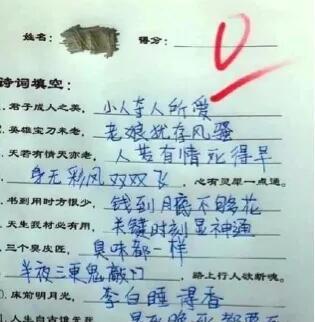 姓名： 得分： 0
诗词填空：
.君子成人之美， 小人夺人所爱
.英雄宝刀未老， 老娘犹存风骚
.天若有情天亦老， 人若有情死得早
身无彩风双双飞 ，心有灵犀一点通。
.书到用时方恨少， 钱到月底不够花
.天生我材必有用， 关键时刻显神通
.三个臭皮匠， 臭味都一样
半夜三更鬼敲门 ，路上行人欲断魂。
0.床前明月光， 李白睡得香
.人生自古谁无死